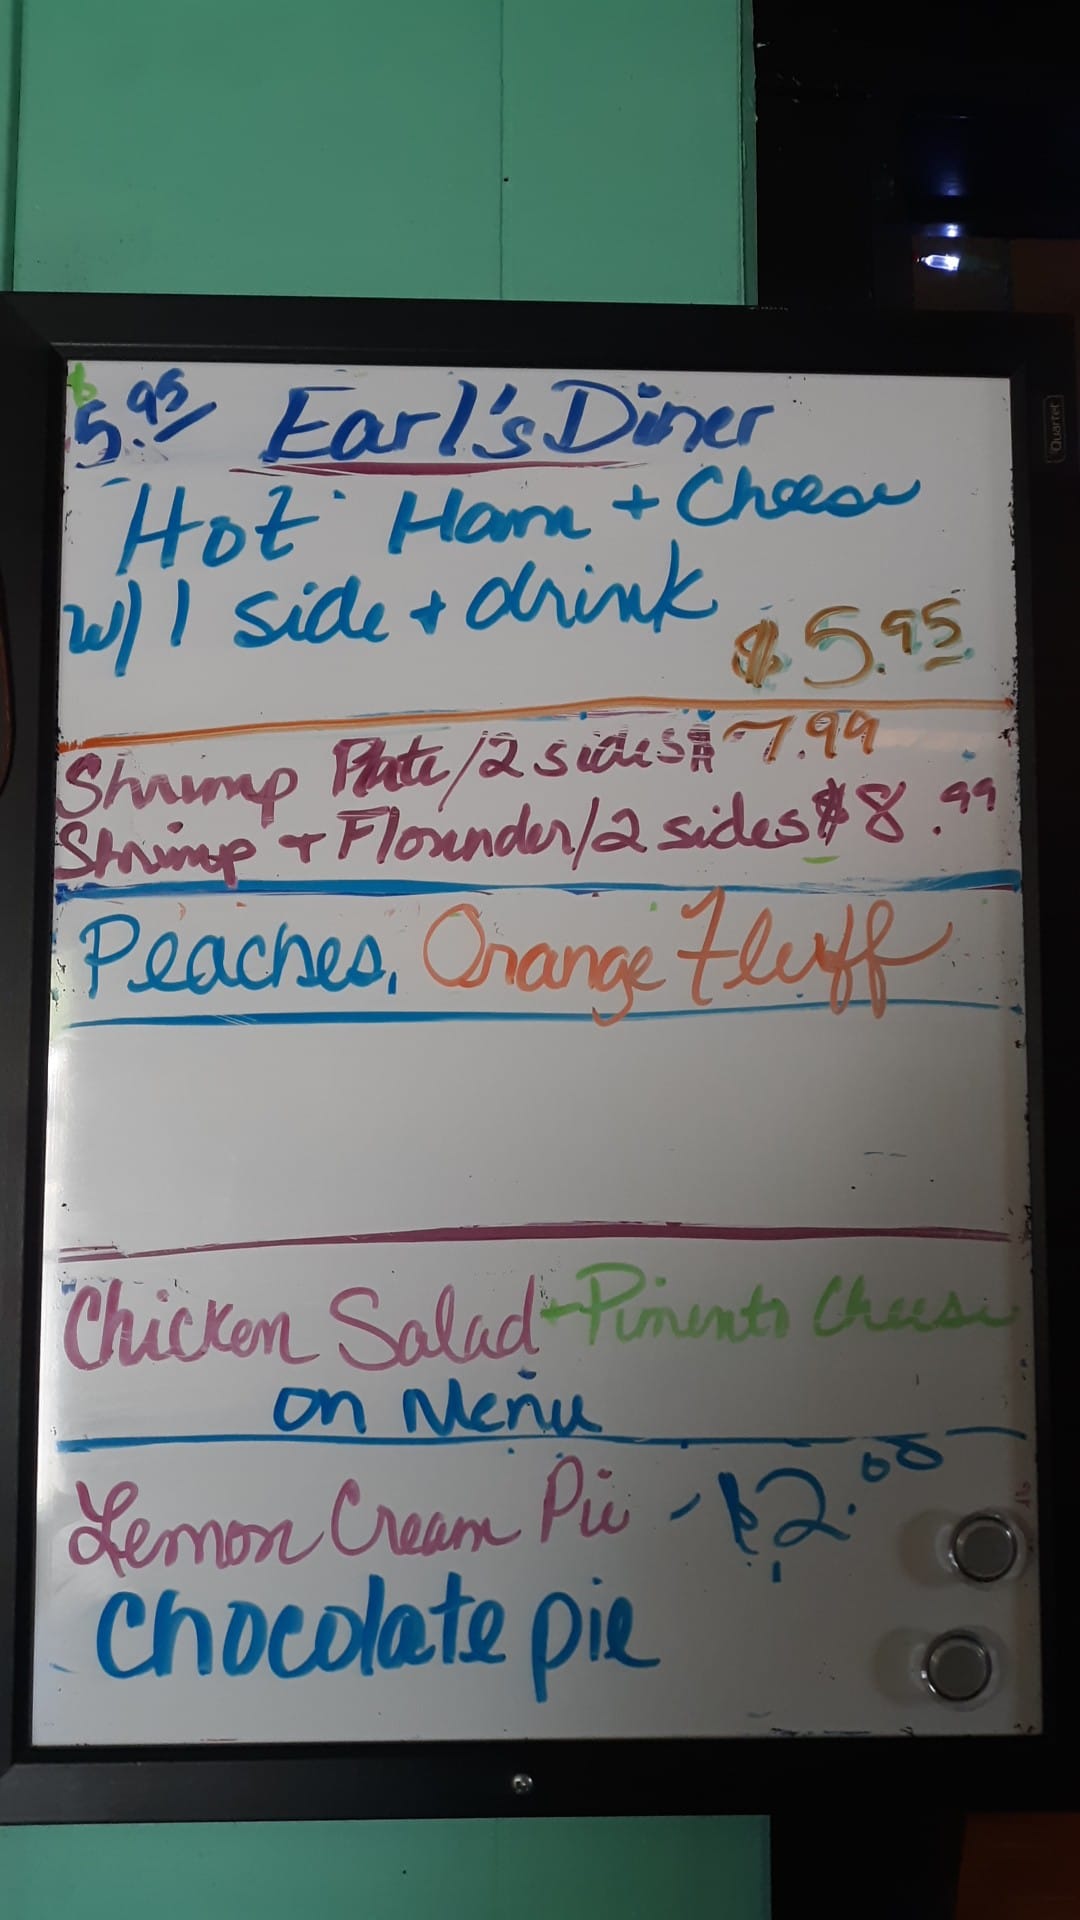 $5.95 Earl's Diner
"Hot" Ham + Cheese
w/ 1 side + drink
$5.95
Shrimp Plate/2 sides $7.99
Shrimp + Flounder/2 sides $8.99
Peaches, Orange Fluff
Chicken Salad - Pimento Cheese
on Menu
Lemon Cream Pie - $2.00
Chocolate pie
Quartet